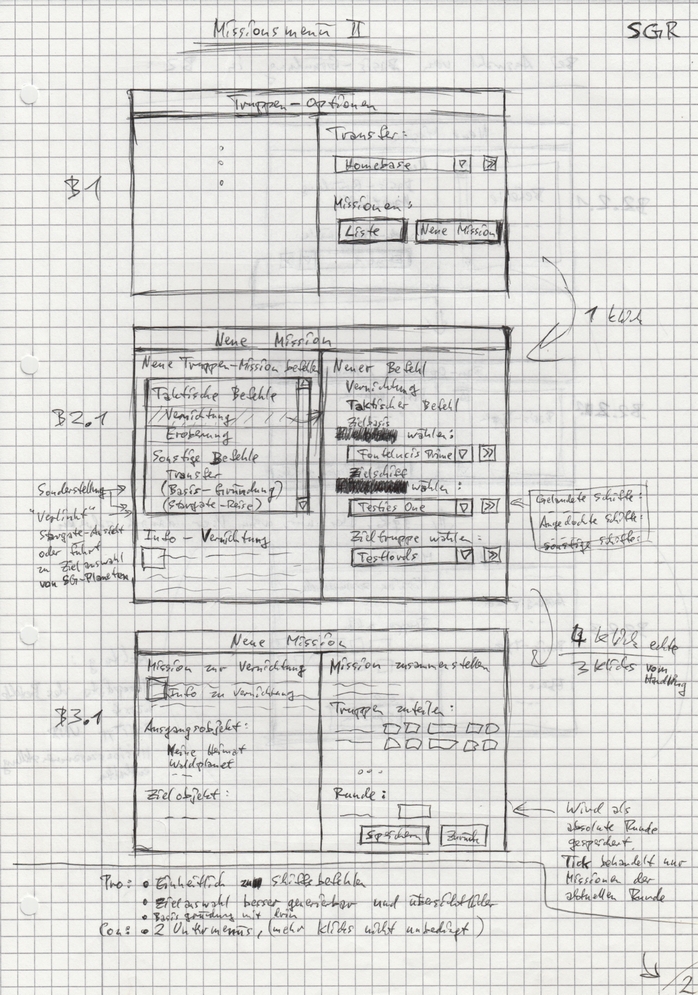 Missionsmenü II
SGR
Truppen-Optionen
B1
Transfer:
Homebase
Missionen:
Liste
Neue Mission
1 klick
Neue Mission
B2.1
Neue Truppen-Mission befehlen
Taktische Befehle
Vernichtung
Eroberung
Sonstige Befehle
Transfer
(Basis-Gründung)
(Stargate-Reise)
Info - Vernichtung
Sonderstellung
"Verlinkt"
Stargate-Ansicht
oder führt
zu Zielauswahl
von SG-Planeten
Neuer Befehl
Vernichtung
Taktischer Befehl
Zielbasis
wählen:
Prime
Zielschiff
wählen:
Testies One
Zieltruppe wählen:
Testlords
Gelandete Schiffe:
Angedockte Schiffe:
sonstige Schiffe:
4 klicks echte
3 klicks vom
Handling
Neue Mission
B3.1
Mission zur Vernichtung
Info zu Vernichtung
Ausgangsobjekt:
Meine Heimat
Waldplanet
Zielobjekt:
Mission zusammenstellen
Truppen zuteilen:
Runde:
Speichern
Zurück
Wird als
absolute Runde
gespeichert.
Tick behandelt nur
Missionen der
aktuellen Runde
Pro: • Einheitlich zu Schiffsbefehlen
• Zielauswahl besser generierbar und übersichtlicher
• Basisgründung mit drin
Con: • 2 Untermenüs, (mehr klicks nicht unbedingt)
/2